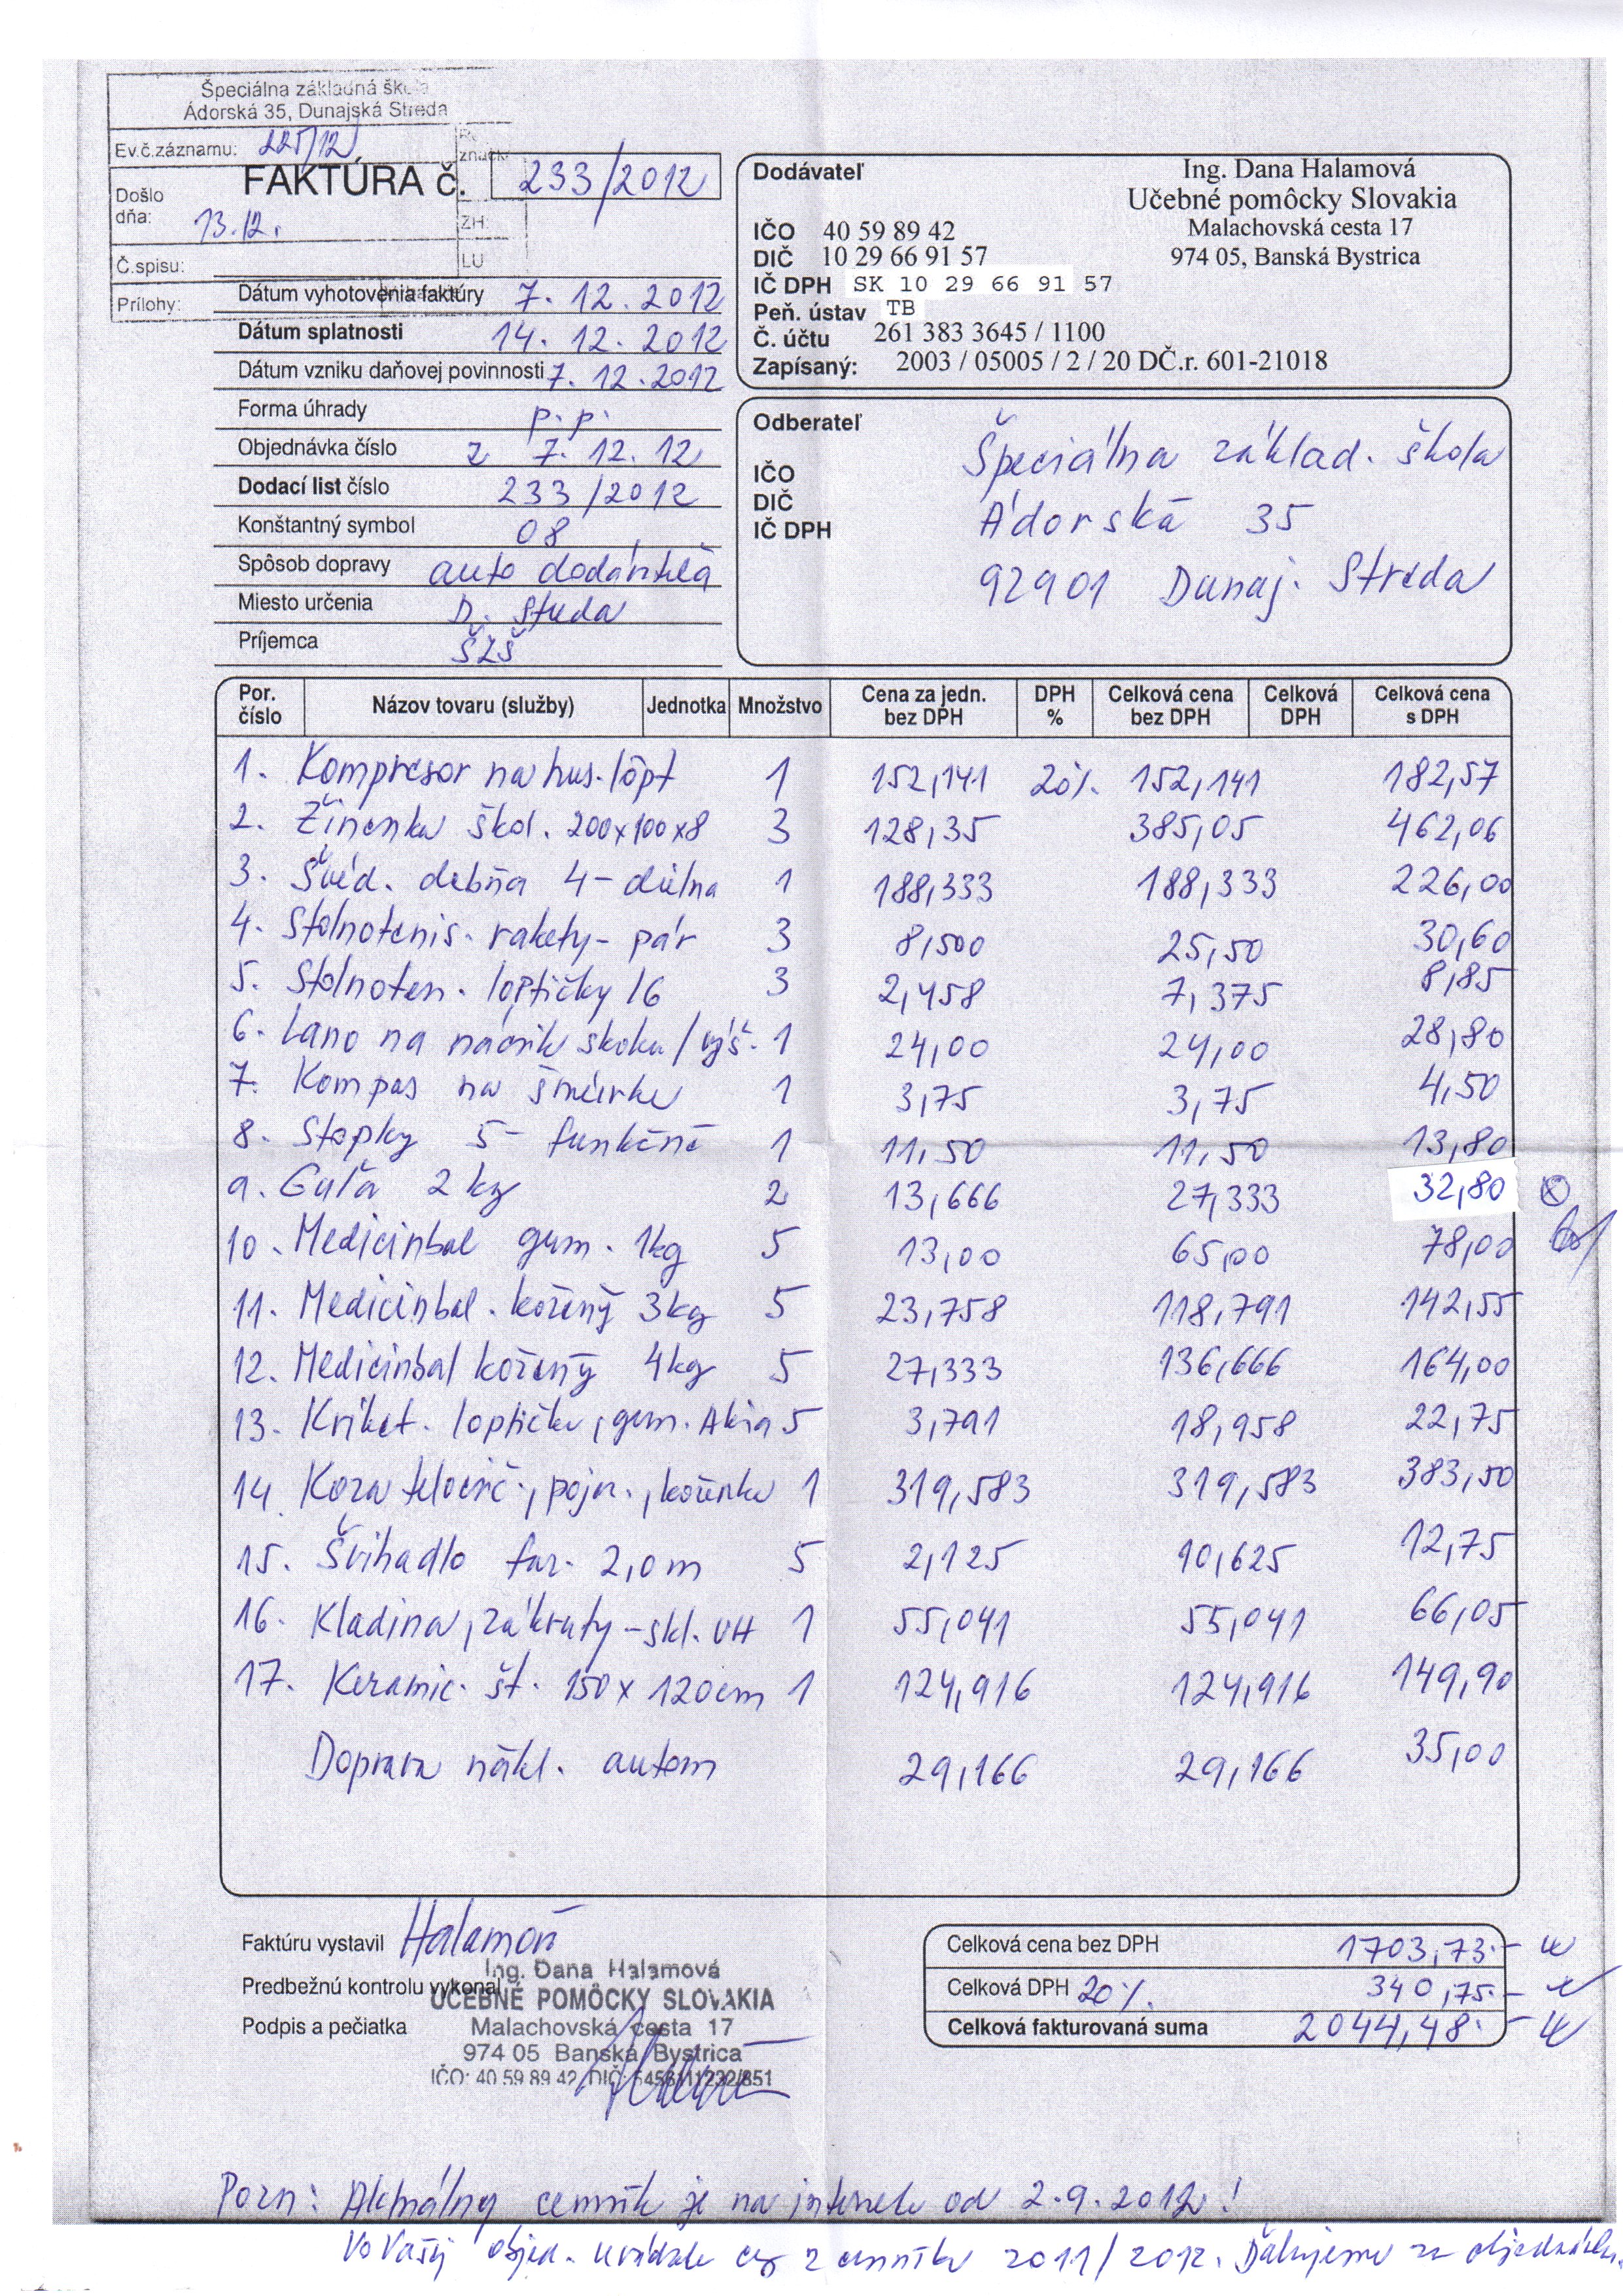 Špeciálna základná škola
Ádorská 35, Dunajská Streda
Ev.č.záznamu: 225/12
Došlo dňa: 13.12.
ZH:
LU
Č.spisu:
Prílohy:
FAKTÚRA č. 233/2012
Dátum vyhotovenia faktúry 7.12.2012
Dátum splatnosti 14.12.2012
Dátum vzniku daňovej povinnosti 7.12.2012
Forma úhrady p.p.
Objednávka číslo z 7.12.12
Dodací list číslo 233/2012
Konštantný symbol 08
Spôsob dopravy auto dodávateľa
Miesto určenia D. Streda
Príjemca ŠZŠ
Dodávateľ
Ing. Dana Halamová
Učebné pomôcky Slovakia
Malachovská cesta 17
974 05, Banská Bystrica
IČO 40 59 89 42
DIČ 10 29 66 91 57
IČ DPH SK 10 29 66 91 57
Peň. ústav TB
Č. účtu 261 383 3645 / 1100
Zapísaný: 2003 / 05005 / 2 / 20 DČ.r. 601-21018
Odberateľ
IČO
DIČ
IČ DPH
Špeciálna základ. škola
Ádorská 35
92901 Dunaj. Streda
Por. číslo Názov tovaru (služby) Jednotka Množstvo Cena za jedn. bez DPH DPH % Celková cena bez DPH Celková DPH Celková cena s DPH
1. Kompresor na hus. lôpt 1 152,141 20% 152,141 182,57
2. Žinenka škol. 200x100x8 3 128,35 385,05 462,06
3. Švéd. debňa 4-dielna 1 188,333 188,333 226,00
4. Stolnotenis. rakety - pár 3 8,500 25,50 30,60
5. Stolnoten. loptičky /6 3 2,458 7,375 8,85
6. Lano na nácvik skoku / výš. 1 24,00 24,00 28,80
7. Kompas na šnúrke 1 3,75 3,75 4,50
8. Stopky 5-funkčné 1 11,50 11,50 13,80
9. Guľa 2kg 2 13,666 27,333 32,80
10. Medicinbal gum. 1kg 5 13,00 65,00 78,00
11. Medicinbal. kožený 3kg 5 23,758 118,791 142,55
12. Medicinbal kožený 4kg 5 27,333 136,666 164,00
13. Kriket. loptička, gum. Akia 5 3,791 18,958 22,75
14. Koza telocvič., pojn., koženka 1 319,583 319,583 383,50
15. Švihadlo far. 2,0m 5 2,125 10,625 12,75
16. Kladina, zákruty - skl. VH 1 55,041 55,041 66,05
17. Keramic. št. 150 x 120cm 1 124,916 124,916 149,90
Doprava nákl. autom 29,166 29,166 35,00
Faktúru vystavil Halamová
Predbežnú kontrolu vykonal
Podpis a pečiatka
Ing. Dana Halamová
UČEBNÉ POMÔCKY SLOVAKIA
Malachovská cesta 17
974 05 Banská Bystrica
IČO: 40 59 89 42, DIČ: 5456111232/851
Celková cena bez DPH 1703,73.-
Celková DPH 20% 340,75.-
Celková fakturovaná suma 2044,48.-
Pozn: Aktuálny cenník je na internete od 2.9.2012!
Vo Vašej objed. uvádzate ceny z cenníku 2011/2012. Ďakujeme za objednávku.